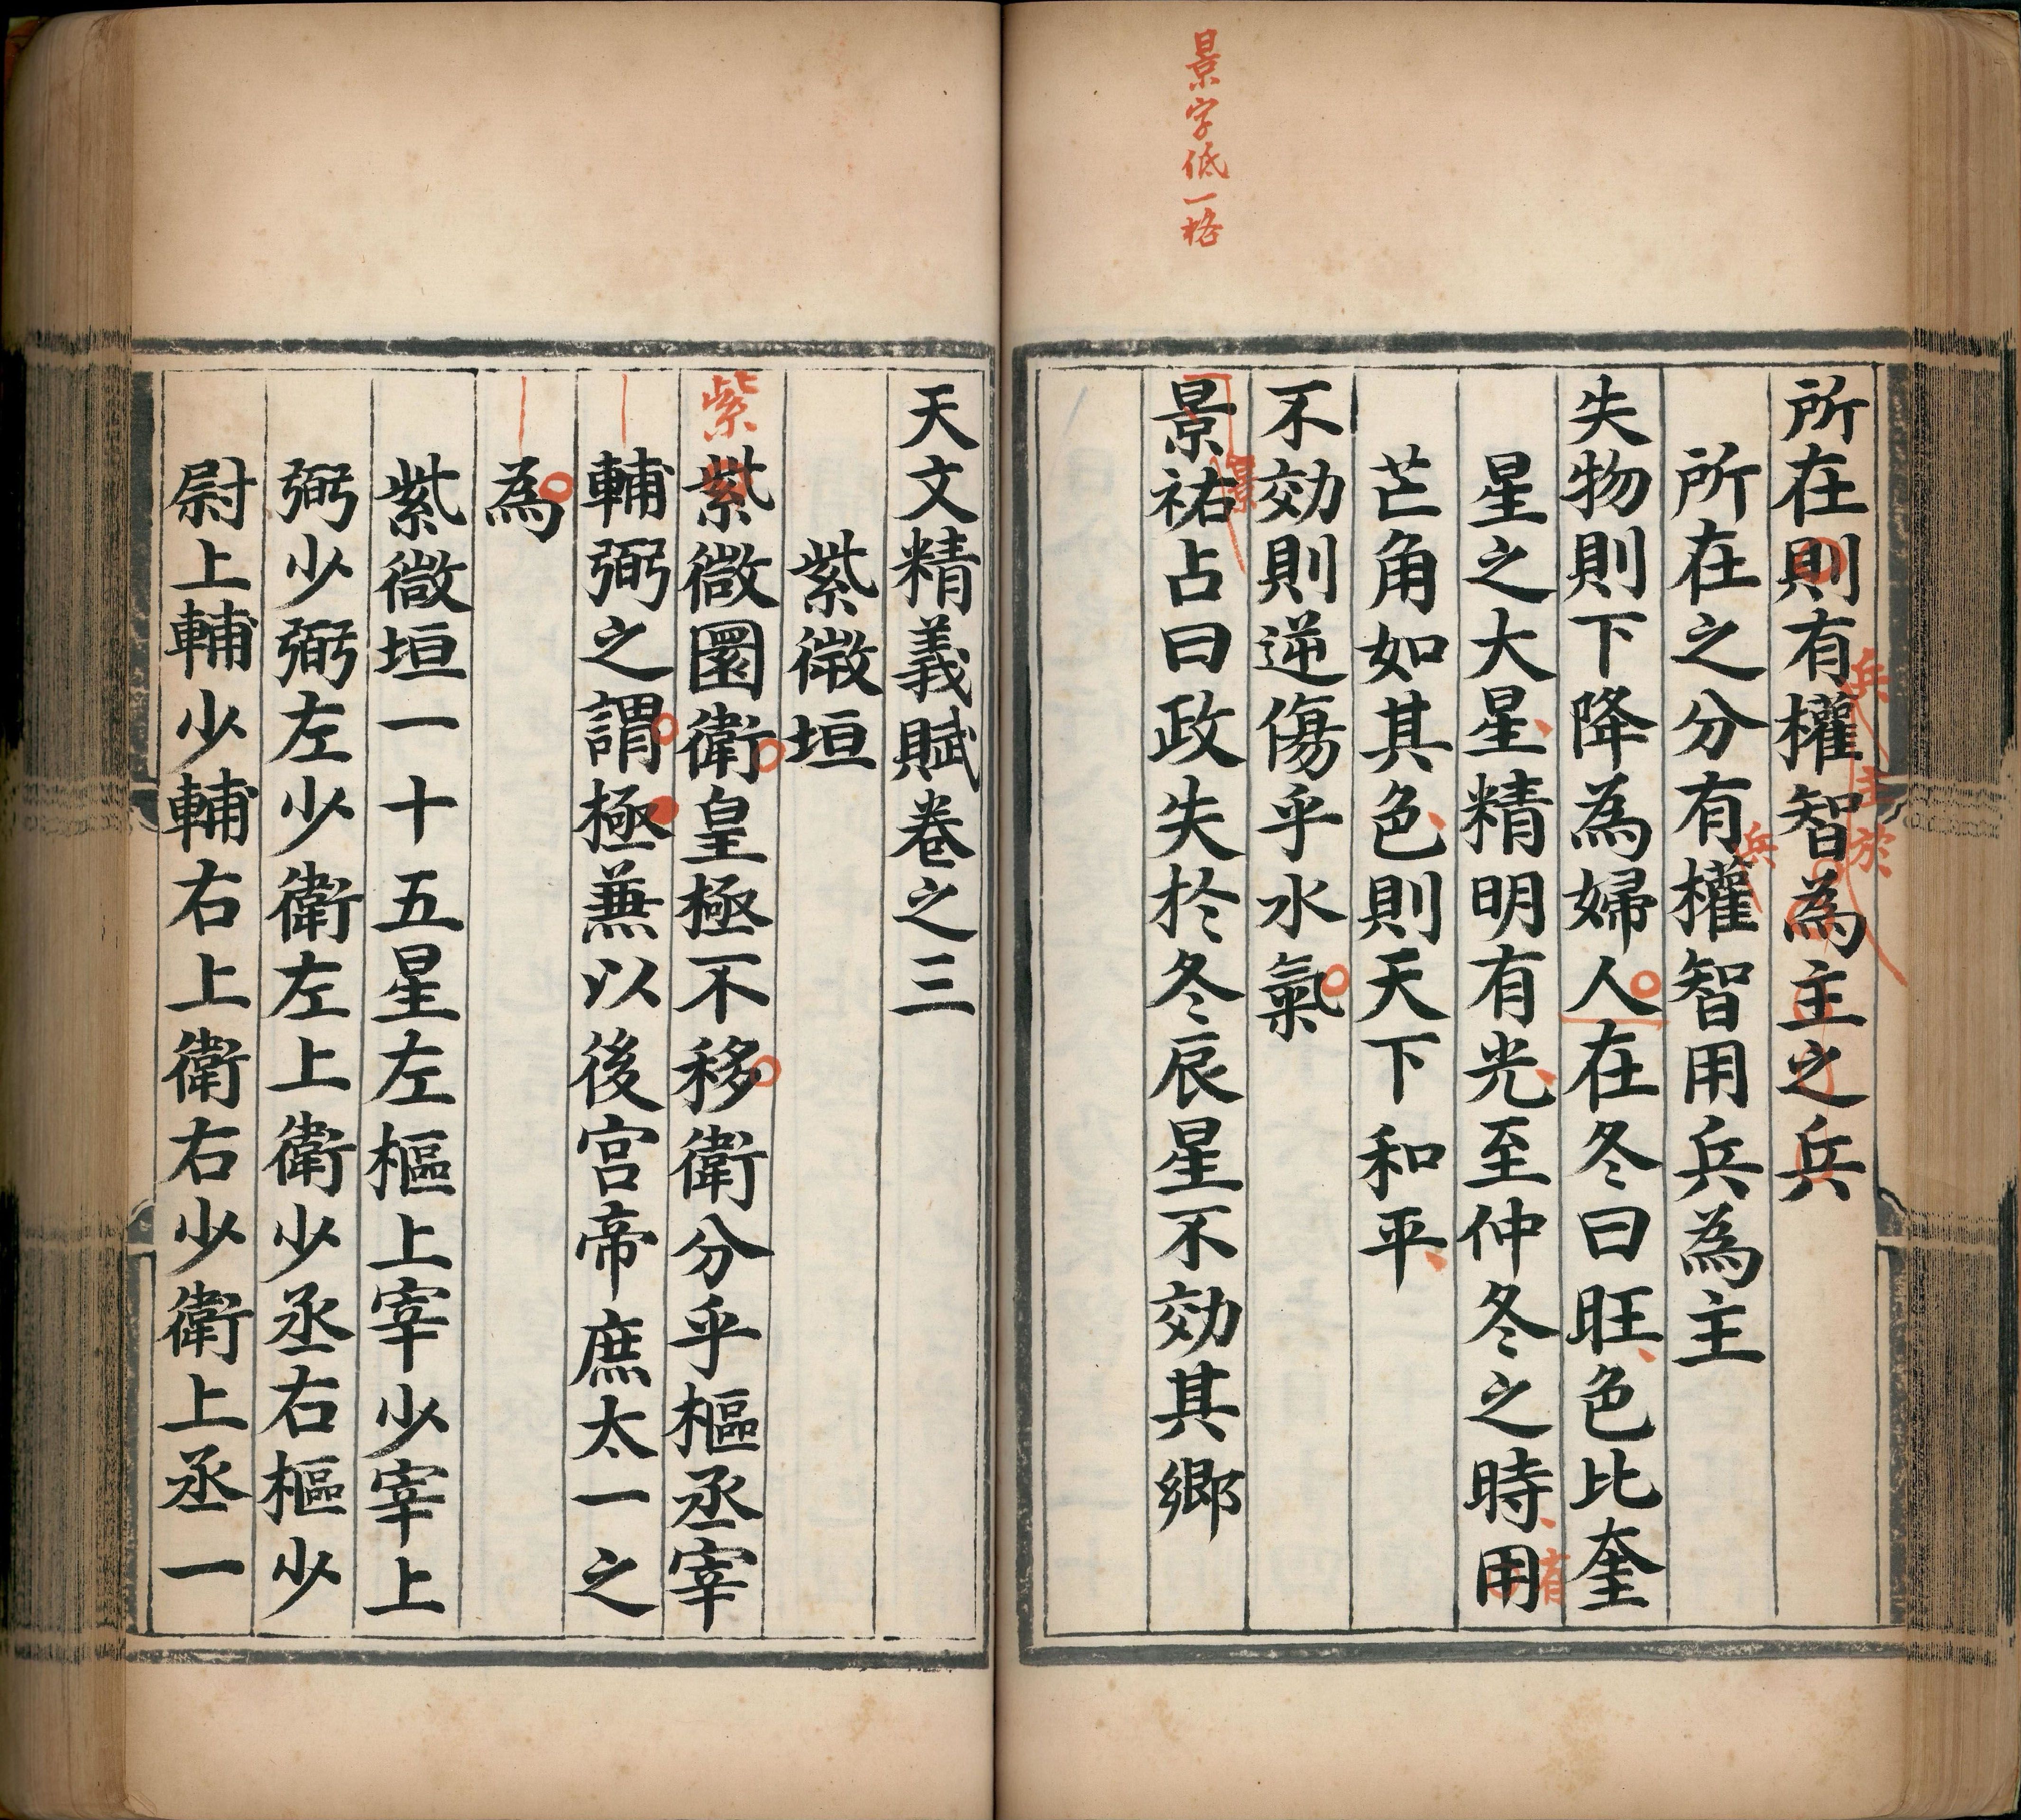 景字低一格
所在則有權智為主之兵
兵
主於
所在之分有權智用兵為主
兵
失物則下降為婦人在冬曰旺色比奎
星之大星精明有光至仲冬之時用
有
芒角如其色則天下和平
不効則逆傷乎水氣
景祐占曰政失於冬辰星不効其鄉
景
天文精義賦卷之三
紫微垣
紫
紫微圜衛皇極不移衛分乎樞丞宰
輔弼之謂極兼以後宮帝庶太一之
為
紫微垣一十五星左樞上宰少宰上
弼少弼左少衛左上衛少丞右樞少
尉上輔少輔右上衛右少衛上丞一